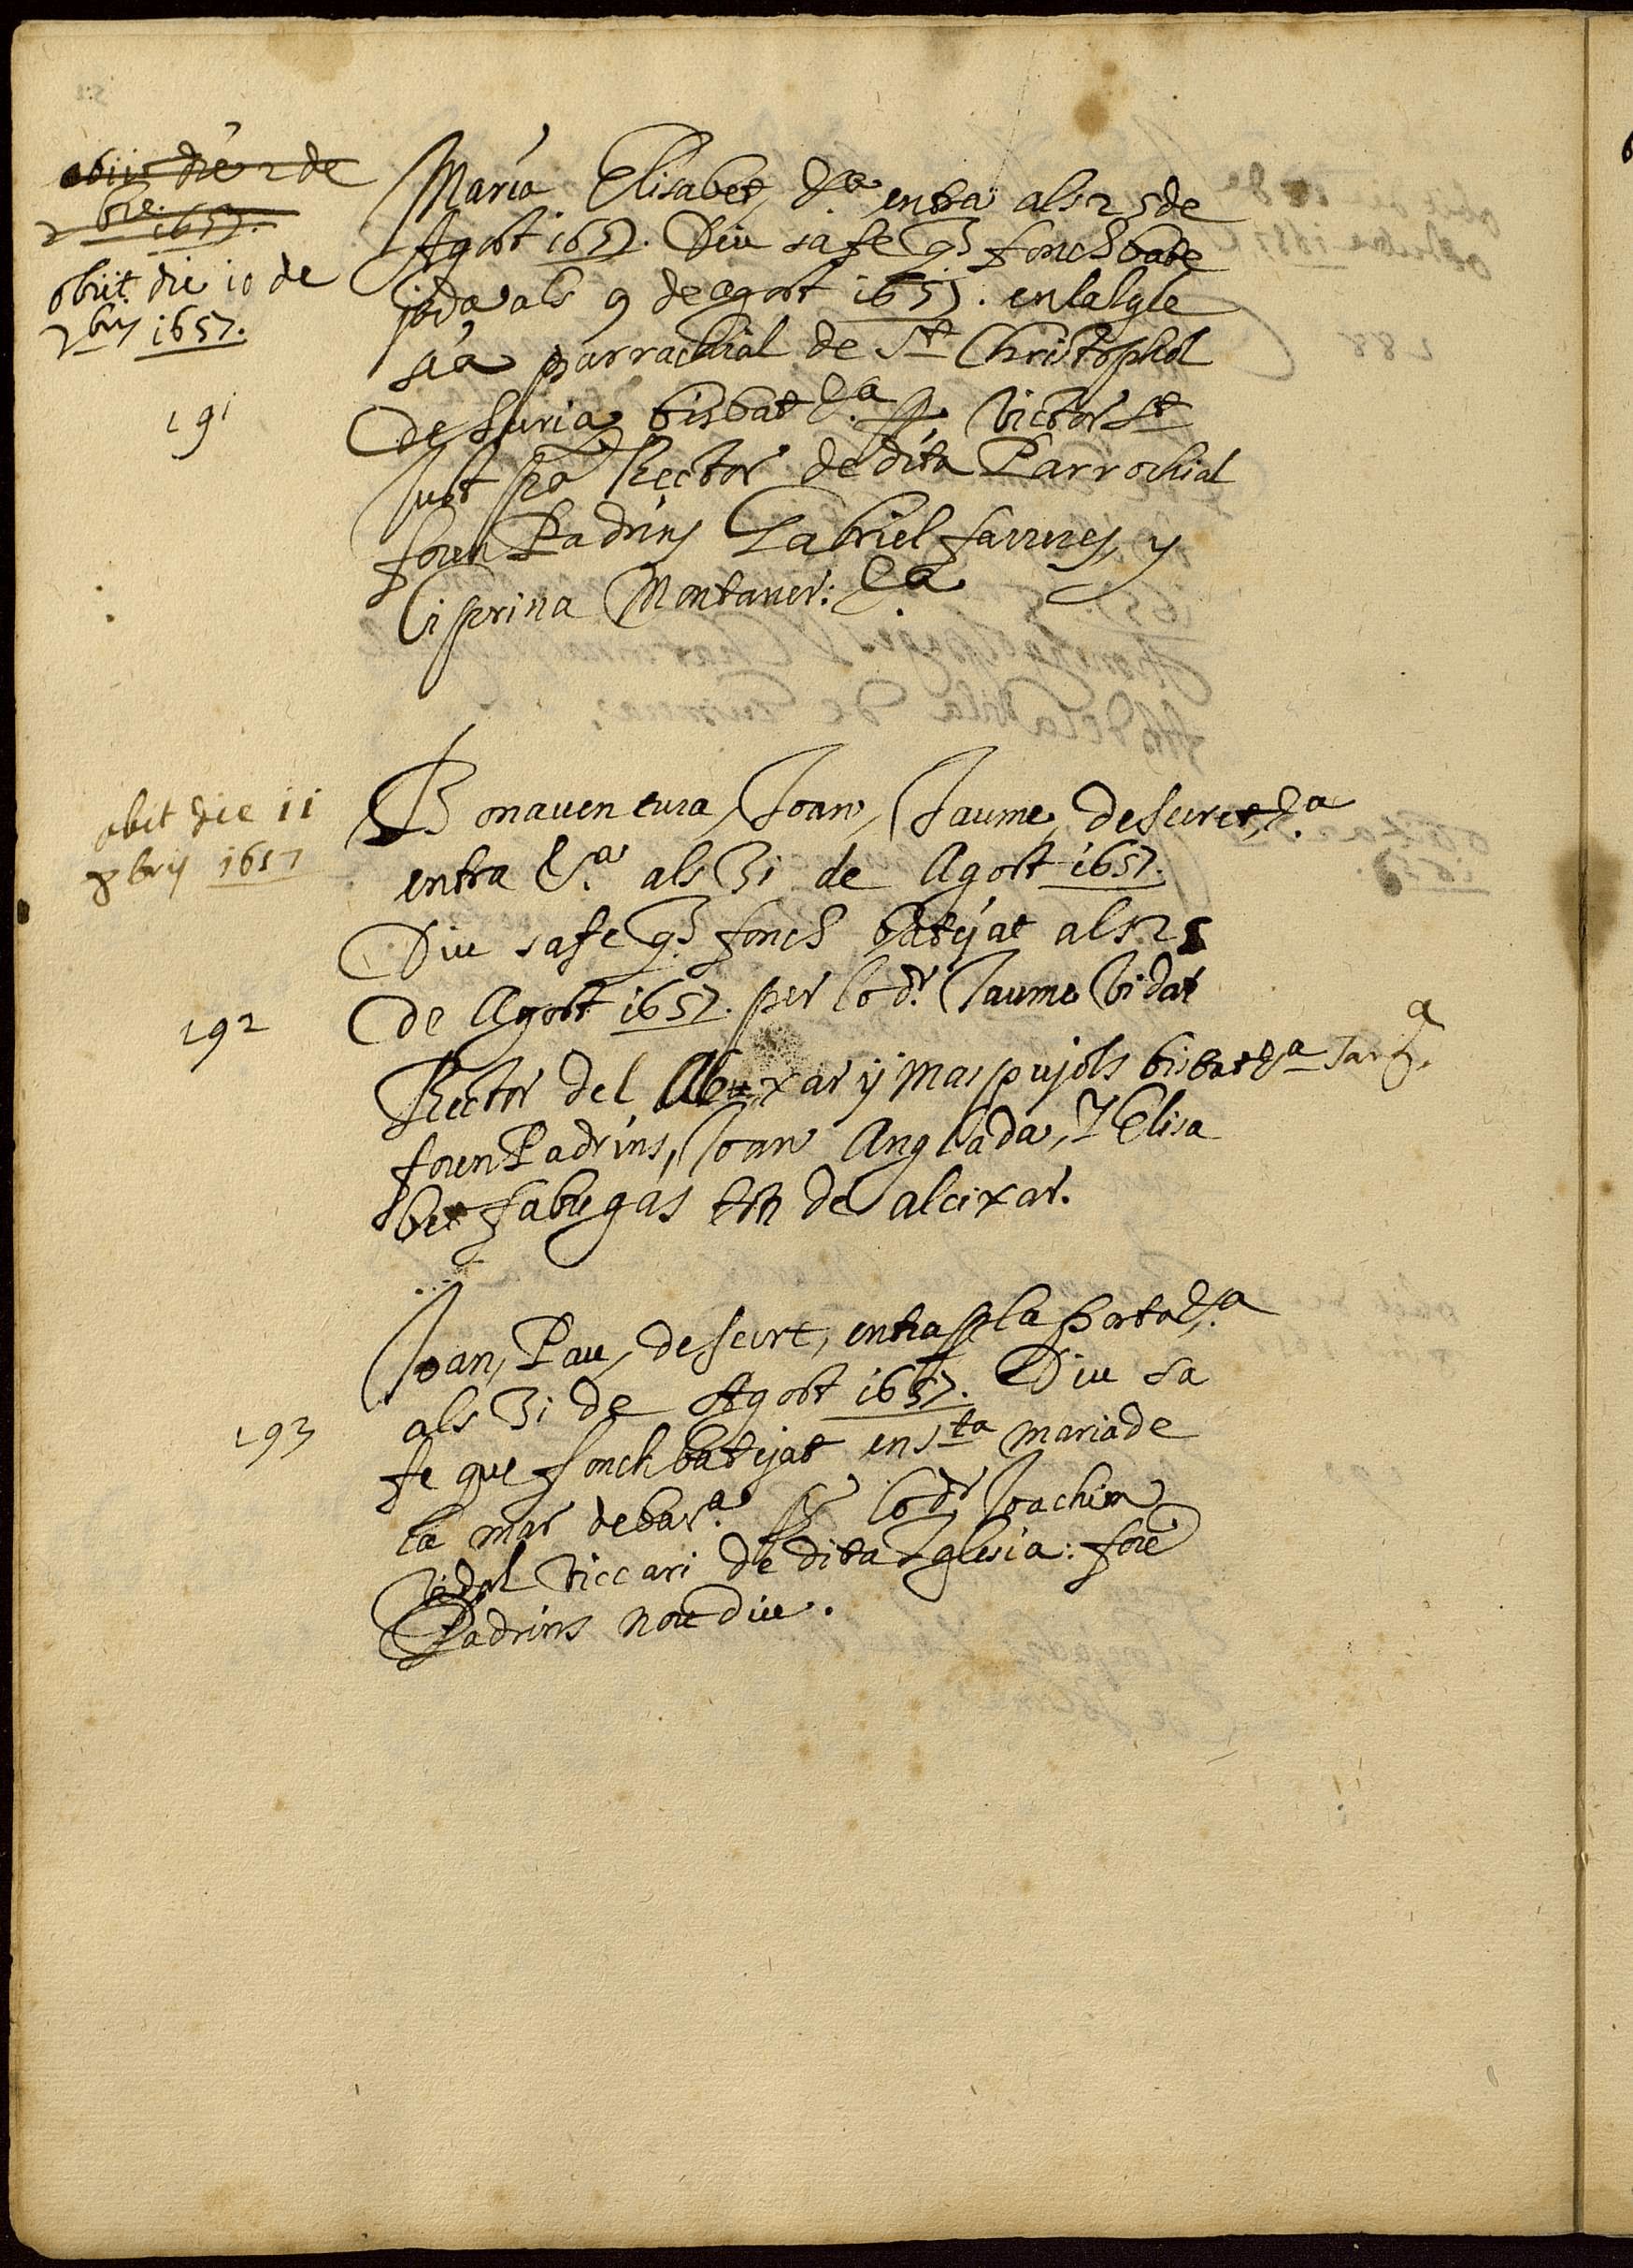 obiit die 2 de
7bre.
1657.
obiit die 10 de
7bris 1657.
191
Maria Elisabet, &.a entra als 25 de
Agost 1657. Diu sa fe q̃ fonch bate
jada als 9 de agost 1657. en la Igle
sia parrachial de St Christophol
de Suria bisbat &.a p. Victor St
Just Rector de dita Parrochial
foren Padrins Gabriel farreres, y
Ciprina Montaner: &.a
obit die 11
8bris 1657
192
Bonaventura, Joan, Jaume, deseiret, &.a
entra &.a als 31 de Agost 1657.
Diu sa fe q̃ fonch batejat als 25
de Agost 1657. per lo dr. Jaume Vidal
Rector del y Mas pujols bisbat &a Targa.
foren Padrins, Joan Anglada, y Elisa
bet fabregas tts de alcixar.
193
Joan, Pau, deseirt, entra p la porta &.a
als 31 de Agost 1657. Diu sa
fe que fonch batejat en sta maria de
la mar de bar.a p lo dr Joachim
Vidal viccari de dita Iglesia: forẽ
Padrins nou diu.